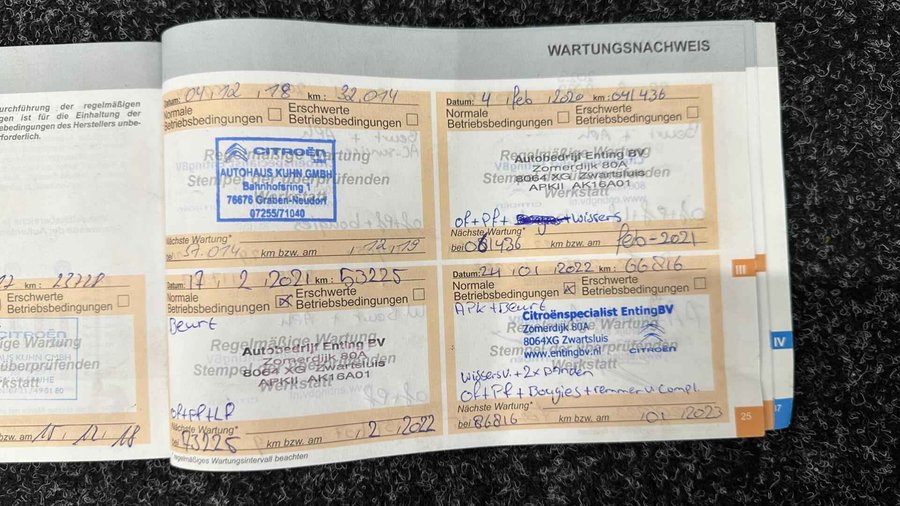 urchführung der regelmäßigen
ngen ist für die Einhaltung der
ebedingungen des Herstellers unbe-
rforderlich.
23728
Erschwerte
Betriebsbedingungen
km bzw. am 11.12.18
WARTUNGSNACHWEIS
Datum: 04.12.18 km: 32.014
Normale Betriebsbedingungen
Erschwerte Betriebsbedingungen
Regelmäßige Wartung
Stempel der überprüfenden
Werkstatt
CITROËN
AUTOHAUS KUHN GMBH
Bahnhofsring 1
76676 Graben-Neudorf
07255/71040
Nächste Wartung*
bei 57.014 km bzw. am .12.19
Datum: 4 feb 2020 km: 041436
Normale Betriebsbedingungen
Erschwerte Betriebsbedingungen
Regelmäßige Wartung
Stempel der überprüfenden
Werkstatt
Autobedrijf Enting BV
Zomerdijk 80A
8064 XG Zwartsluis
APKII AK16A01
of+pf+ wissers
Nächste Wartung*
bei 061436 km bzw. am feb-2021
Datum: 17 2 2021 km: 53225
Normale Betriebsbedingungen
Erschwerte Betriebsbedingungen
Beurt
Regelmäßige Wartung
Stempel der überprüfenden
Werkstatt
Autobedrijf Enting BV
Zomerdijk 80A
8064 XG Zwartsluis
APKII AK16A01
of+PF+LF
Nächste Wartung*
bei 73225 km bzw. am 2 2022
* regelmäßiges Wartungsintervall beachten
Datum: 24 01 2022 km: 66816
Normale Betriebsbedingungen
Erschwerte Betriebsbedingungen
APk + Beurt
Regelmäßige Wartung
Stempel der überprüfenden
Werkstatt
Citroënspecialist Enting BV
Zomerdijk 80A
8064XG Zwartsluis
www.entingbv.nl
CITROËN
wissers v. + 2x banden
of + Pf + Bougies + remmen v. Compl.
Nächste Wartung*
bei 86816 km bzw. am 01 2023
III
IV
25
37